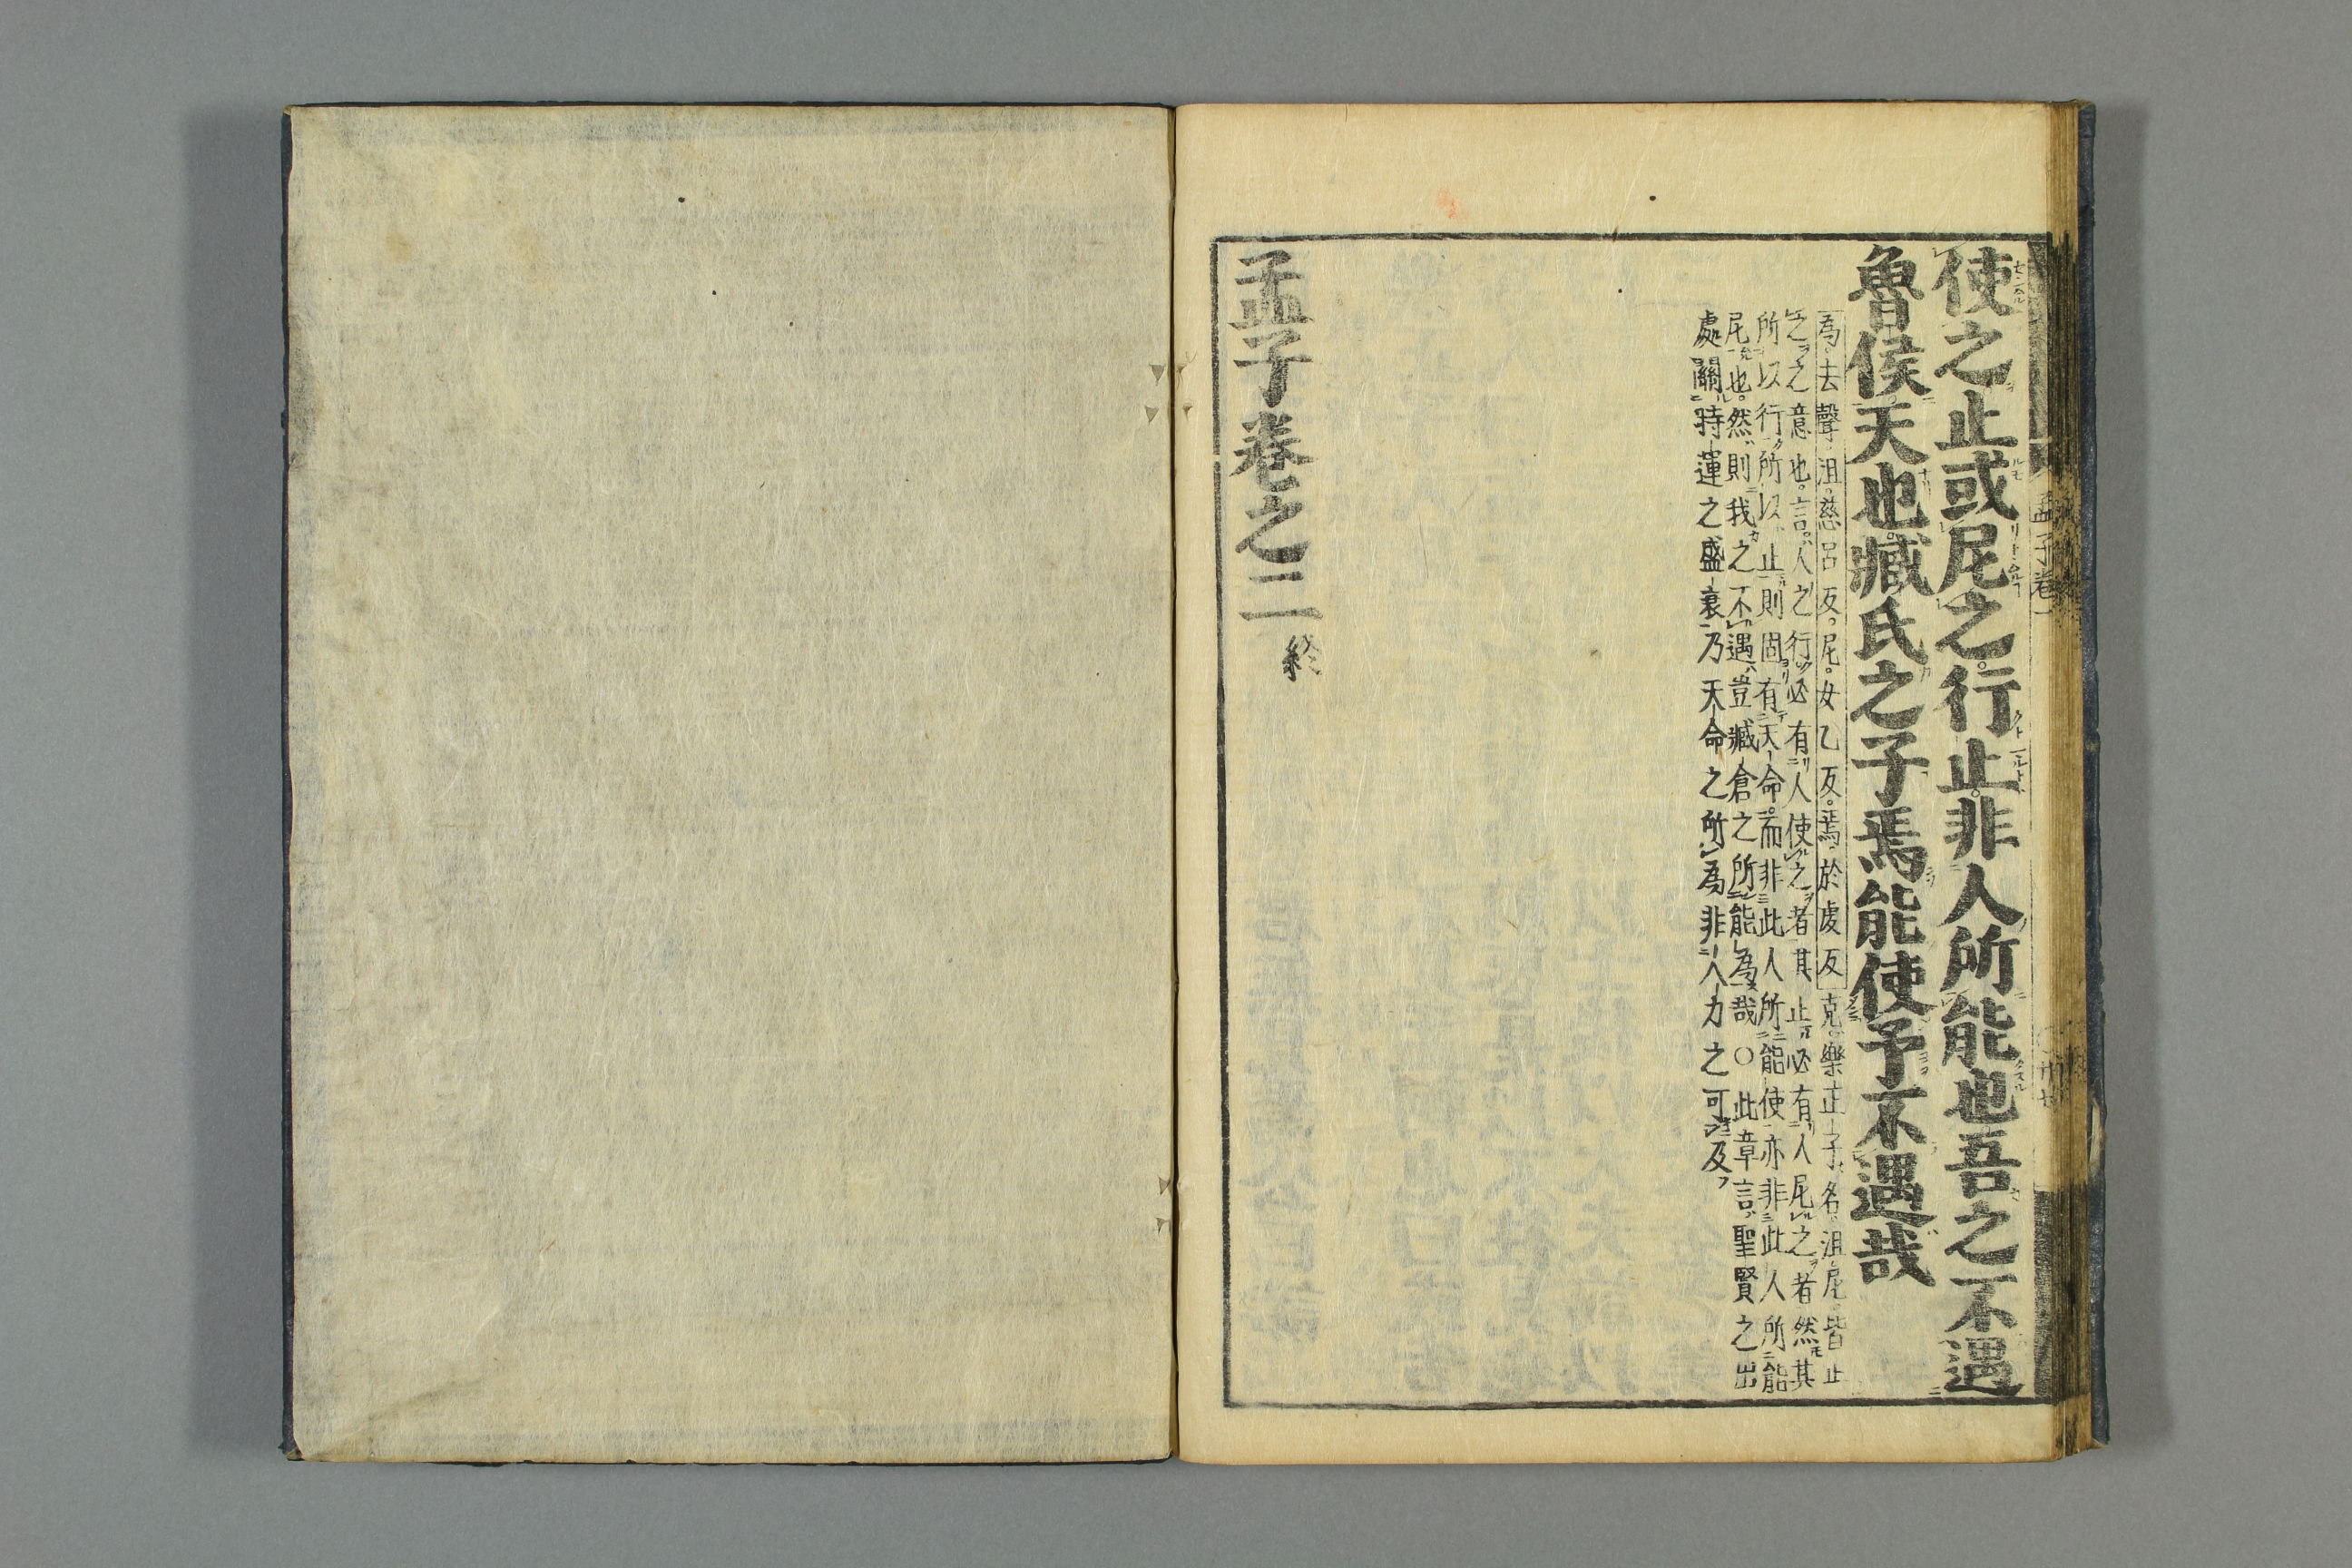 使之止或尼之行止非人所能也吾之不遇
魯侯天也臧氏之子焉能使予不遇哉
為去聲沮慈呂反尼女乙反焉於虔反克樂正子名沮尼皆止
之之意也言人之行必有人使之者其止必有人尼之者然其
所以行所以止則固有天命而非此人所能使亦非此人所能
尼也然則我之不遇豈臧倉之所能為哉○此章言聖賢之出
處關時運之盛衰乃天命之所為非人力之可及
孟子卷之二終